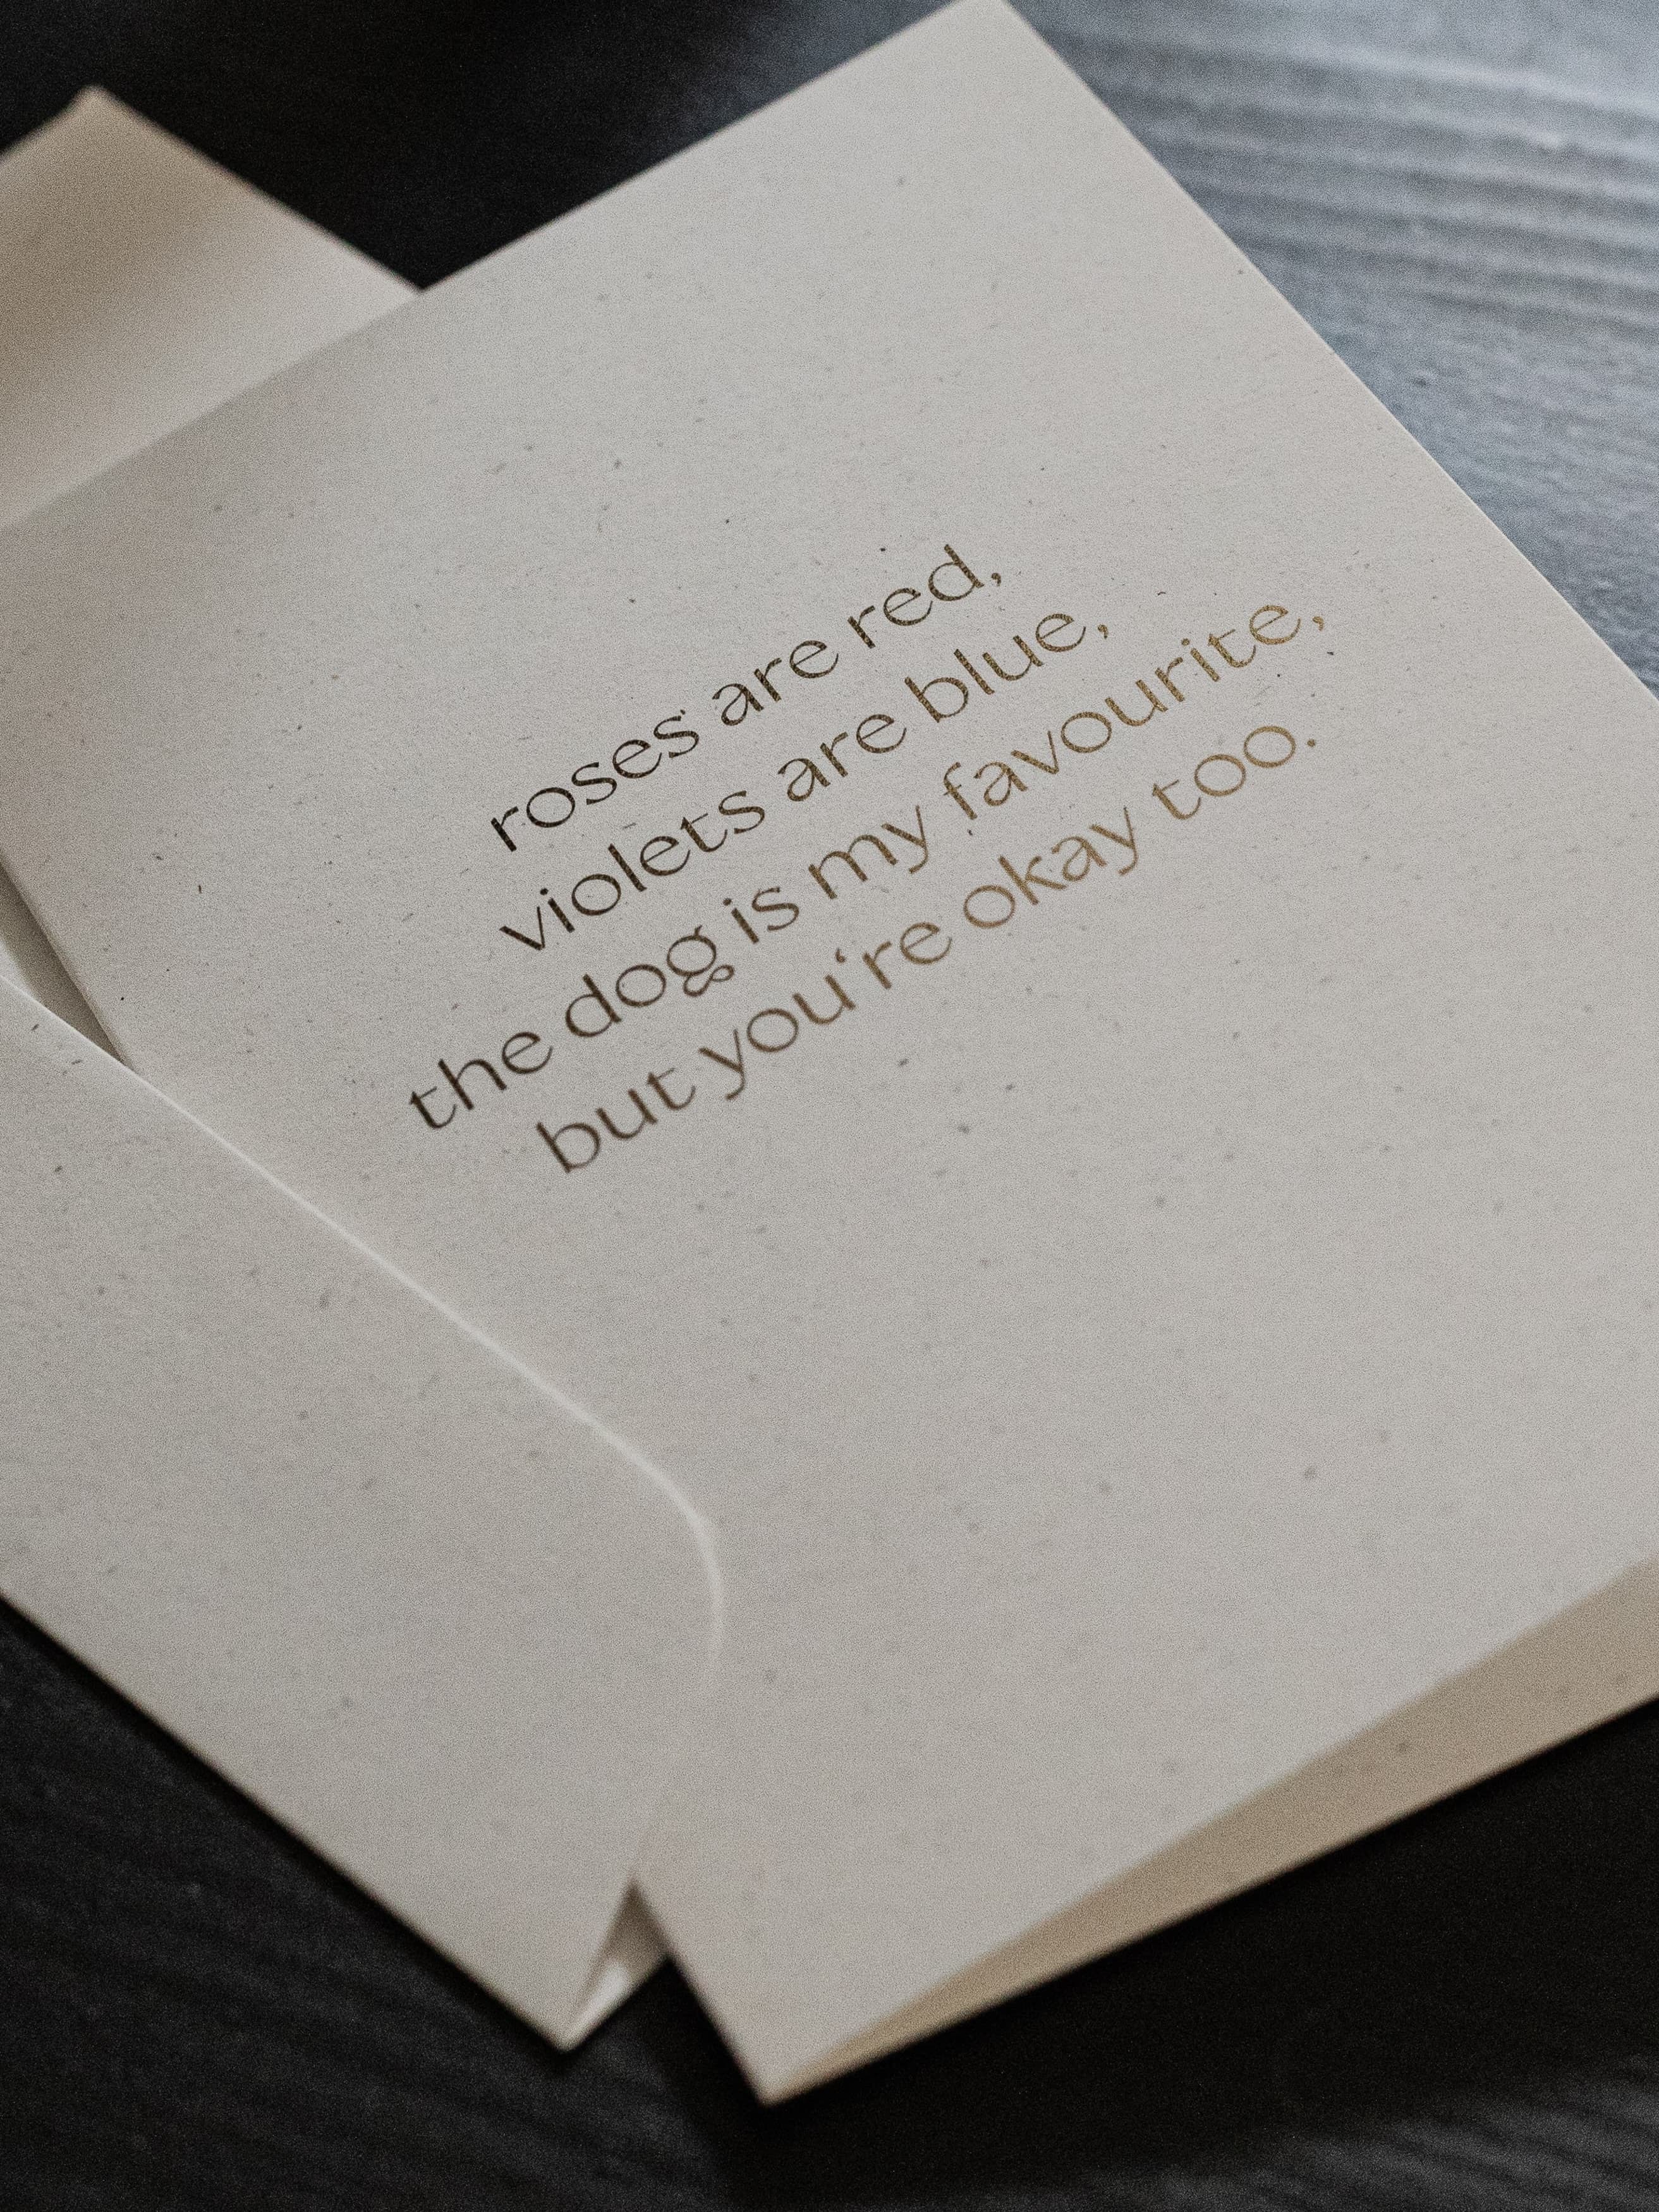 roses are red,
violets are blue,
the dog is my favourite,
but you‘re okay too.